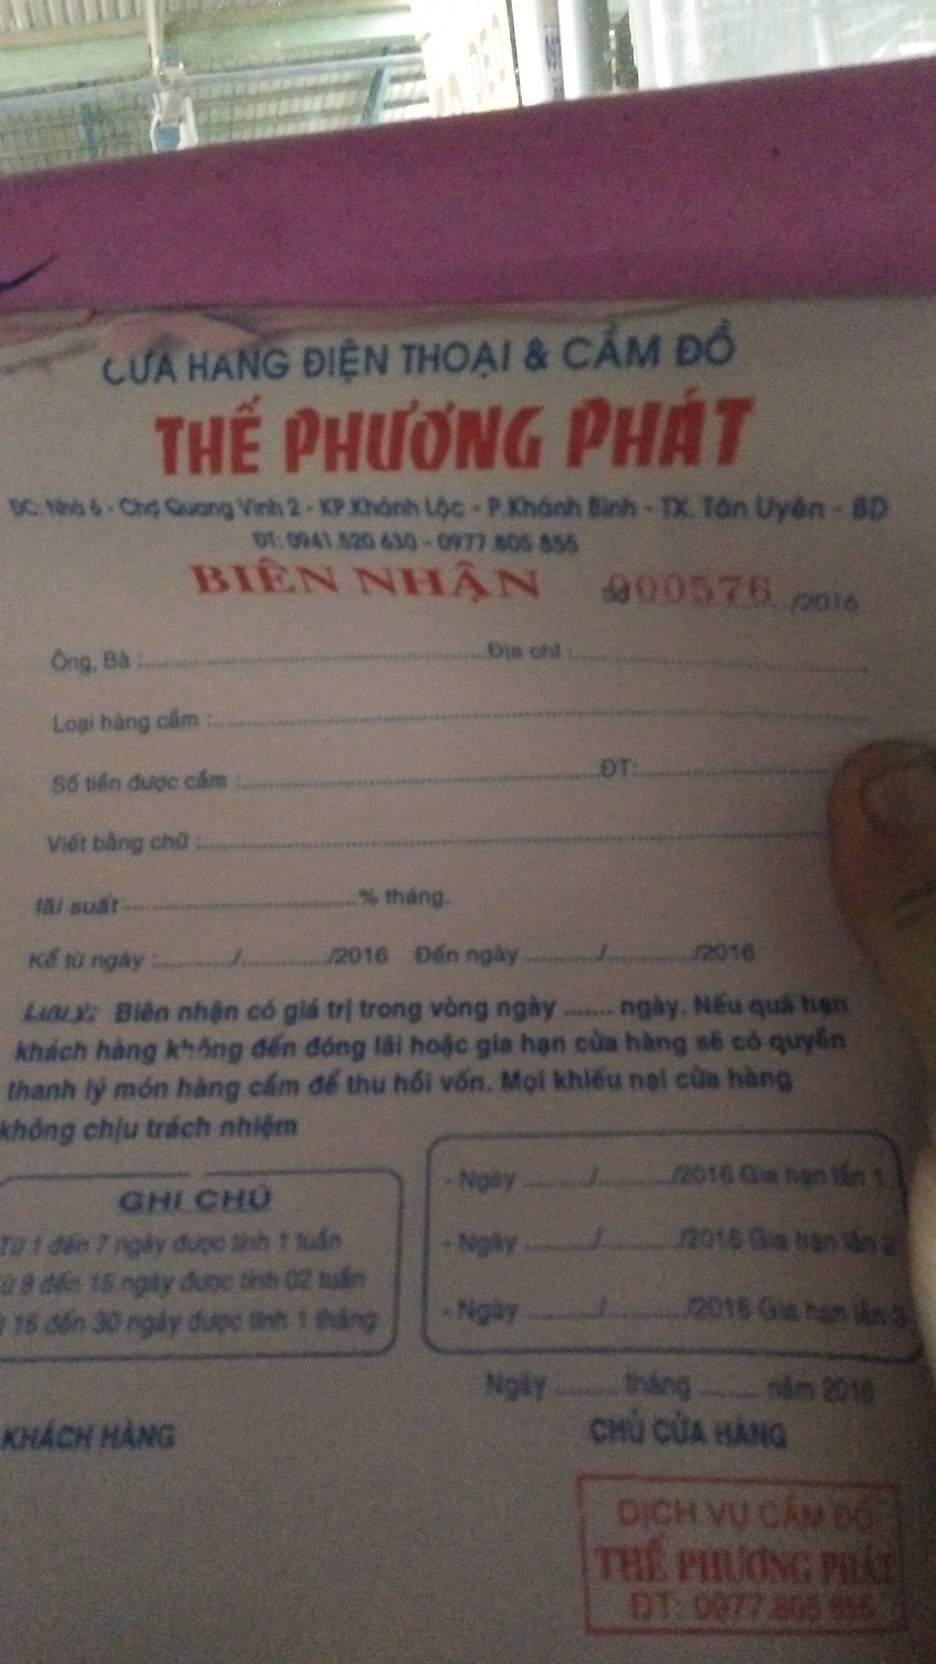 CỬA HÀNG ĐIỆN THOẠI & CẦM ĐỒ
THẾ PHƯƠNG PHÁT
ĐC: Nhà 6 - Chợ Quang Vinh 2 - KP.Khánh Lộc - P.Khánh Bình - TX. Tân Uyên - BD
ĐT: 0941.520 630 - 0977.805 855
BIÊN NHẬN Số 000576 /2016
Ông, Bà : Địa chỉ :
Loại hàng cầm :
Số tiền được cầm : ĐT:
Viết bằng chữ :
lãi suất % tháng.
Kể từ ngày : / /2016 Đến ngày / /2016
Lưu ý: Biên nhận có giá trị trong vòng ngày ....... ngày. Nếu quá hạn
khách hàng không đến đóng lãi hoặc gia hạn cửa hàng sẽ có quyền
thanh lý món hàng cầm để thu hồi vốn. Mọi khiếu nại cửa hàng
không chịu trách nhiệm
GHI CHÚ
Từ 1 đến 7 ngày được tính 1 tuần
từ 8 đến 15 ngày được tính 02 tuần
16 đến 30 ngày được tính 1 tháng
- Ngày / /2016 Gia hạn lần 1
- Ngày / /2016 Gia hạn lần 2
- Ngày / /2016 Gia hạn lần 3
Ngày tháng năm 2016
KHÁCH HÀNG CHỦ CỬA HÀNG
DỊCH VỤ CẦM ĐỒ
THẾ PHƯƠNG PHÁT
ĐT: 0977.805 855